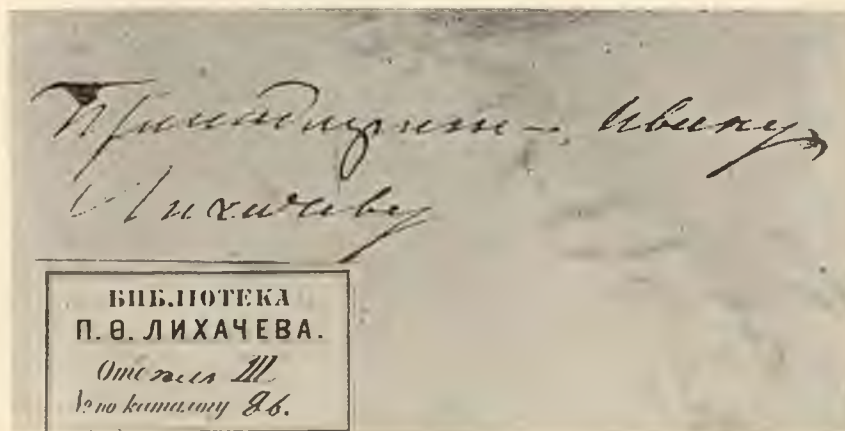 Принадлежит Ивану
Лихачеву
БИБЛІОТЕКА
П. Ѳ. ЛИХАЧЕВА.
Отдѣлъ III
№ по каталогу 86.